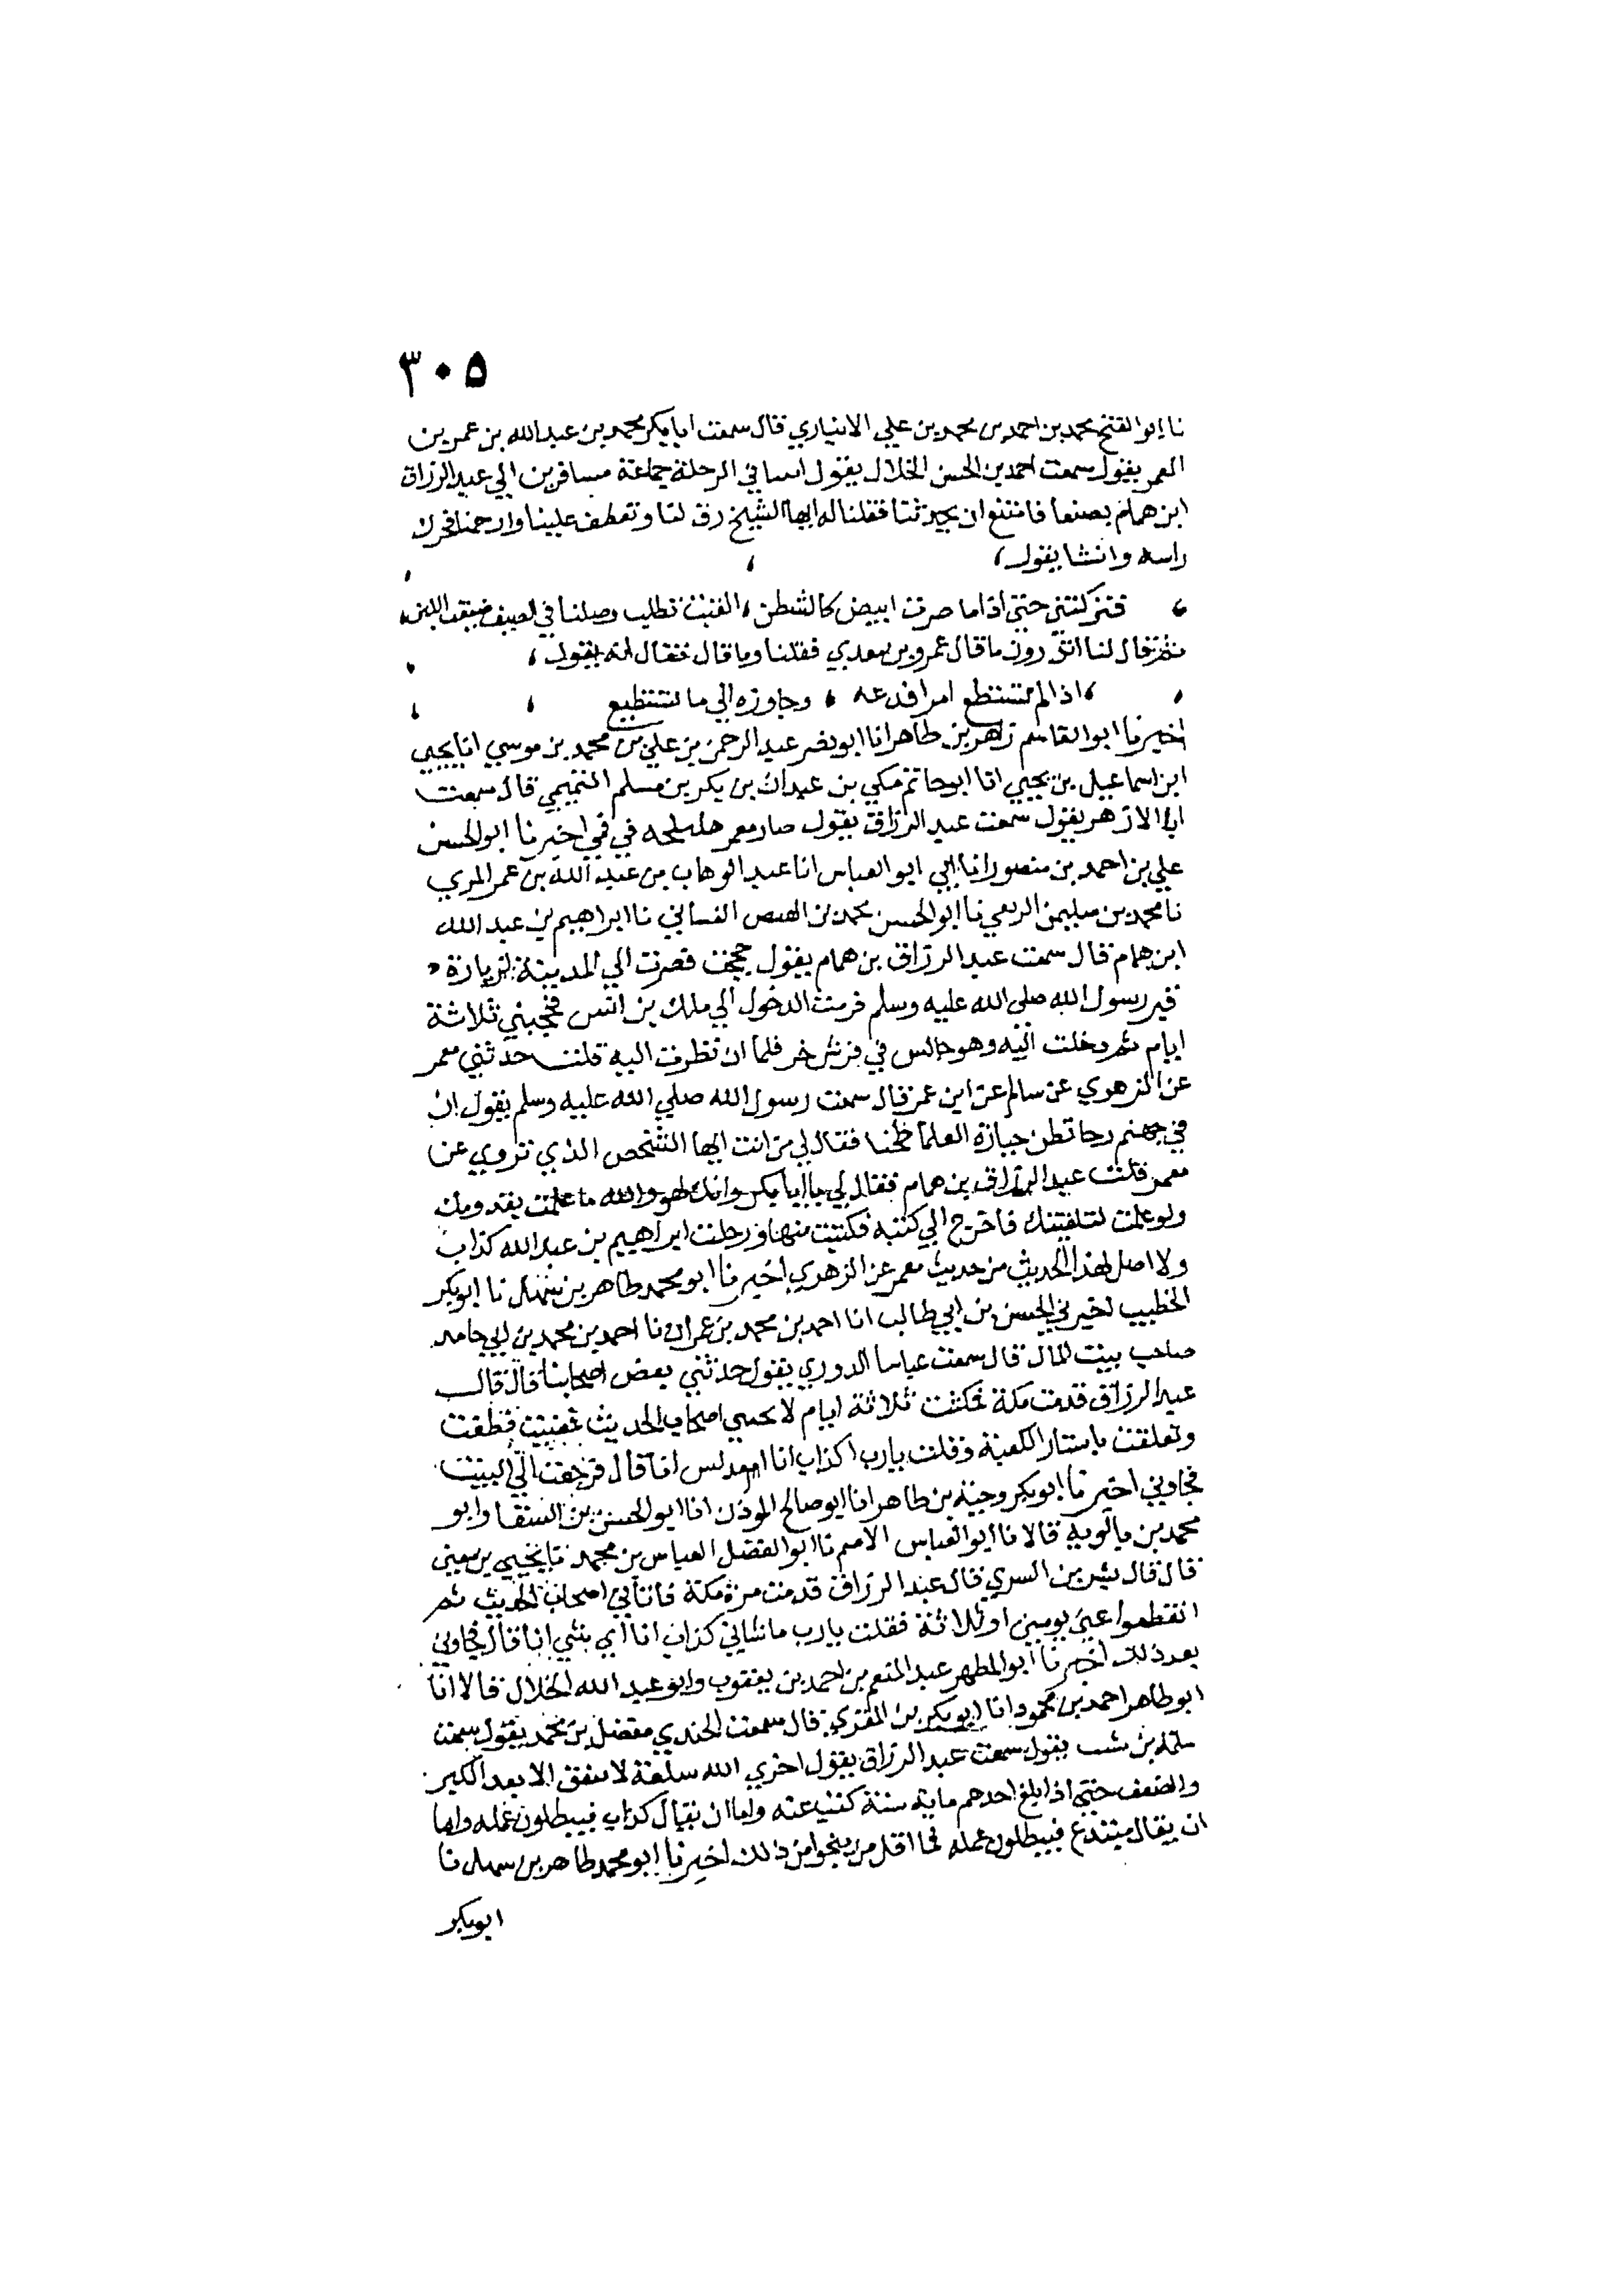 ٣٠٥
نا ابو الفتح محمد بن احمد بن محمد بن علي الانباري قال سمعت ابا بكر محمد بن عبد الله بن عمر بن
العمر يقول سمعت احمد بن الحسن الخلال يقول اتينا في الرحلة جماعة مسافرين الي عبد الرزاق
ابن همام بصنعا فامتنع ان يحدثنا فقلنا له ايها الشيخ رق لنا وتعطف علينا وارحمنا فحرك
راسه وانشا يقول،
، فتركتني حتي اذا ما صرت ابيض كالشطن ، انشات تطلب وصلنا في الصيف ضيعت اللبن ،
ثم قال لنا اتدرون ما قال عمرو بن معدي فقلنا وما قال فقال انه يقول ،
، اذا لم تستطع امرا فدعه ، وجاوزه الي ما تستطيع
اخبرنا ابو القاسم زاهر بن طاهر انا ابو نصر عبد الرحمن بن علي بن محمد بن موسي انا يحيي
ابن اسماعيل بن يحيي انا ابو حاتم مكي بن عبدان بن بكر بن مسلم التميمي قال سمعت
ابا الازهر يقول سمعت عبد الرزاق يقول صار معمر هليلجه في فمي اخبرنا ابو الحسن
علي بن احمد بن منصور انا ابي ابو العباس انا عبد الوهاب بن عبد الله بن عمر المري
نا محمد بن سليمن الربعي نا ابو الحسن محمد بن الفيض الغساني نا ابراهيم بن عبد الله
ابن همام قال سمعت عبد الرزاق بن همام يقول حججت فصرت الي المدينة لزيارة
قبر رسول الله صلى الله عليه وسلم فرمت الدخول الي ملك بن انس فحجبني ثلاثة
ايام ثم دخلت اليه وهو جالس في فرش خز فلما ان نظرت اليه قلت حدثني معمر
عن الزهري عن سالم عن ابن عمر قال سمعت رسول الله صلي الله عليه وسلم يقول ان
في جهنم رحا تطحن جبابرة العلما طحنا فقال لي من انت ايها الشخص الذي تروي عن
معمر قلت عبد الرزاق بن همام فقال لي يا ابا بكر وانك لهو والله ما علمت بقدومك
ولو علمت لتلقيتك فاخرج الي كتبه فكتبت منها ورحلت ابراهيم بن عبد الله كذاب
ولا اصل لهذا الحديث من حديث معمر عن الزهري اخبرنا ابو محمد طاهر بن سهل نا ابو بكر
الخطيب اخبرني الحسن بن ابي طالب انا احمد بن محمد بن عمران نا احمد بن محمد بن ابي حامد
صاحب بيت المال قال سمعت عباسا الدوري يقول حدثني بعض اصحابنا قال قال
عبد الرزاق قدمت مكة فمكثت ثلاثة ايام لا يجيي اصحاب الحديث فمضيت فطفت
وتعلقت باستار الكعبة وقلت يا رب اكذاب انا امدلس انا قال فرجعت الي البيت
فجاوني اخبرنا ابو بكر وجيه بن طاهر انا ابو صالح الموذن انا ابو الحسن بن السقا وابو
محمد بن بالويه قالا نا ابو العباس الاصم نا ابو الفضل العباس بن محمد نا يحيي بن معين
قال قال بشر بن السري قال عبد الرزاق قدمت مرة مكة فاتاني اصحاب الحديث ثم
انقطعوا عني يومين او ثلاثة فقلت يا رب ما شاني كذاب انا اي شي انا قال فجاوني
بعد ذلك اخبرنا ابو المطهر عبد المنعم بن احمد بن يعقوب وابو عبد الله الخلال قالا انا
ابو طاهر احمد بن محمود انا ابو بكر بن المقري قال سمعت الجندي مفضل بن محمد يقول سمعت
سلمة بن شب يقول سمعت عبد الرزاق يقول اخزي الله سلعة لا تنفق الا بعد الكبر
والضعف حتي اذا بلغ احدهم ماية سنة كتب عنه واما ان يقال كذاب فيبطلون علمه واما
ان يقال مبتدع فيبطلون عمله فما اقل من ينجوا من ذلك اخبرنا ابو محمد طاهر بن سهل نا
ابو بكر